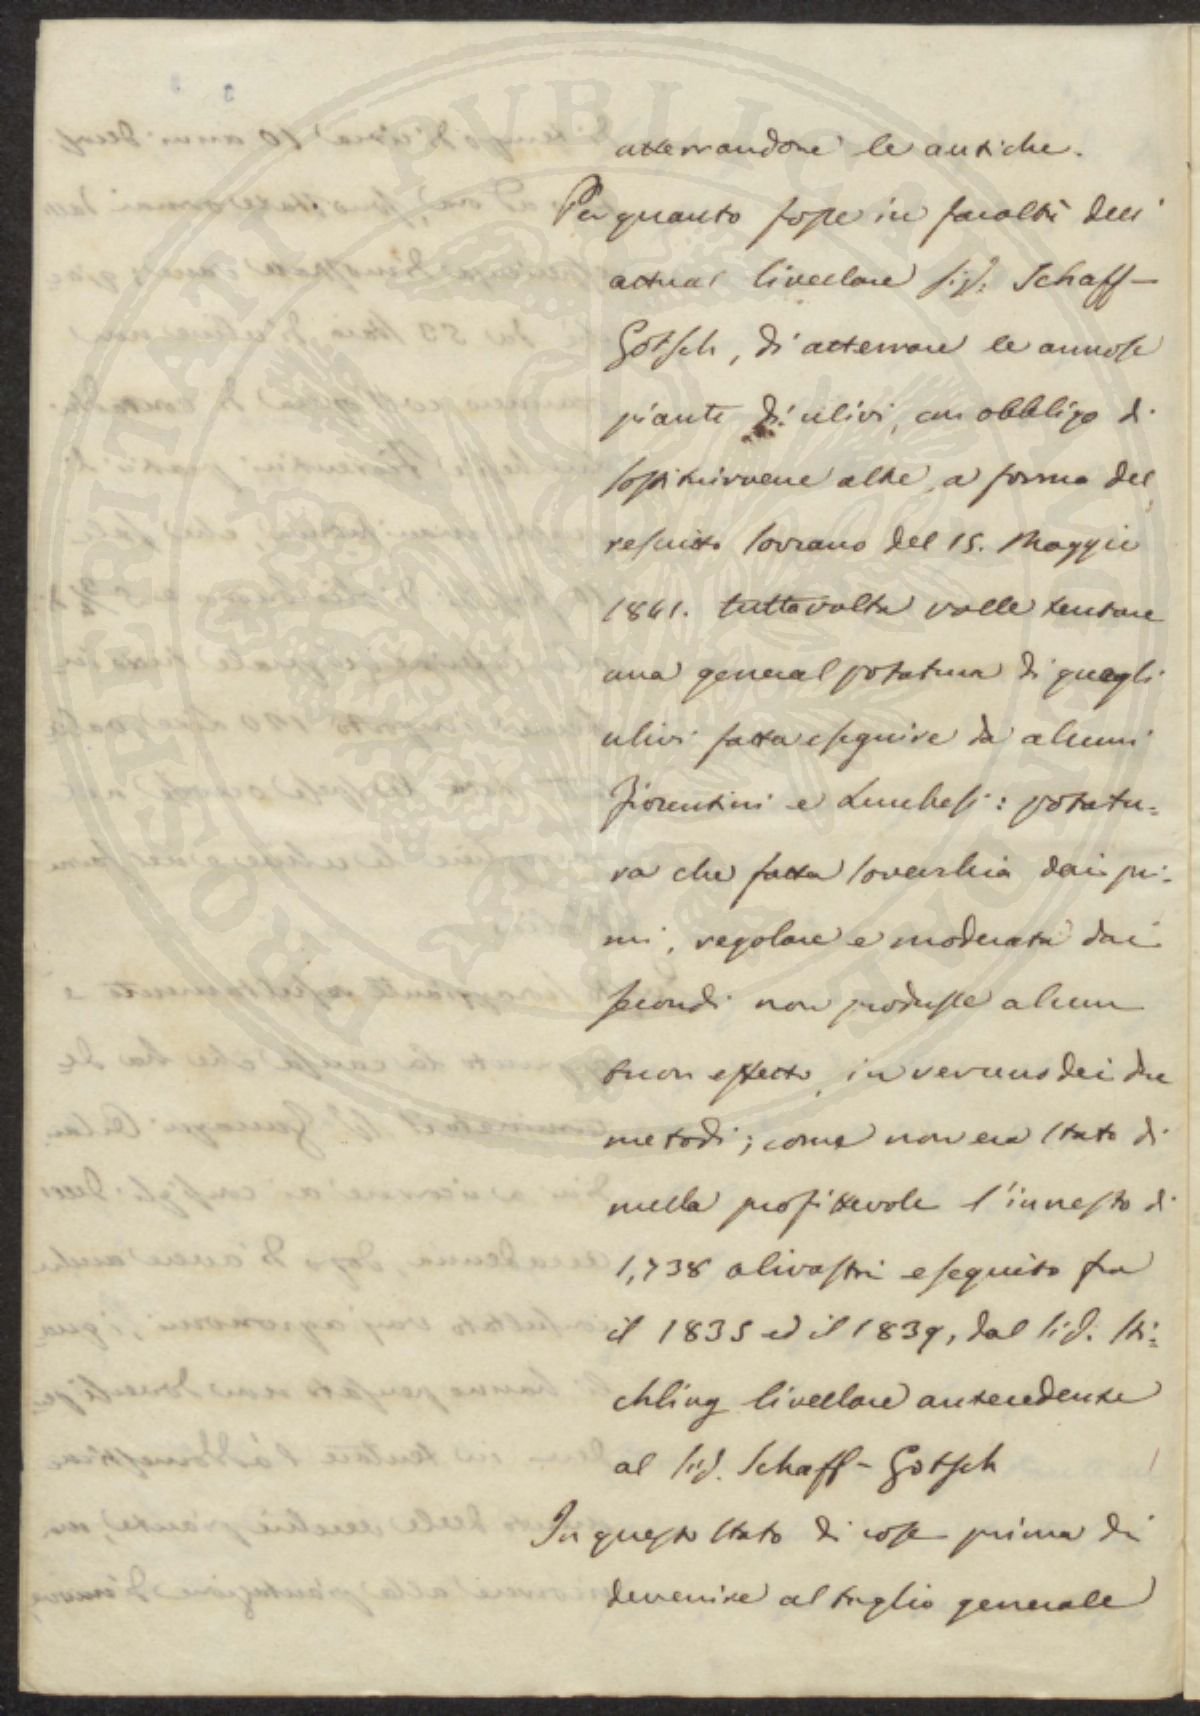 atterrandone le antiche.
Per quanto fosse in facoltà dell'
actual livellare sig. Schaff-
Gotsch, di atterrare le annose
piante di ulivi, con obbligo di
sostituirvene altre, a forma del
rescritto sovrano del 15. Maggio
1841. tuttavolta volle tentare
una general potatura di quegli
ulivi fatta eseguire da alcuni
Fiorentini e Lucchesi: potatu=
ra che fatta soverchia dai pri=
mi, regolare e moderata dai
secondi non produsse alcun
buon effetto, in veruno dei due
metodi; come non era stato di
nulla profittevole l'innesto di
1,738 olivastri eseguito fra
il 1835 ed il 1839, dal sig. Sti=
chling livellare antecedente
al sig. Schaff-Gotsch
In questo stato di cose prima di
devenire al taglio generale